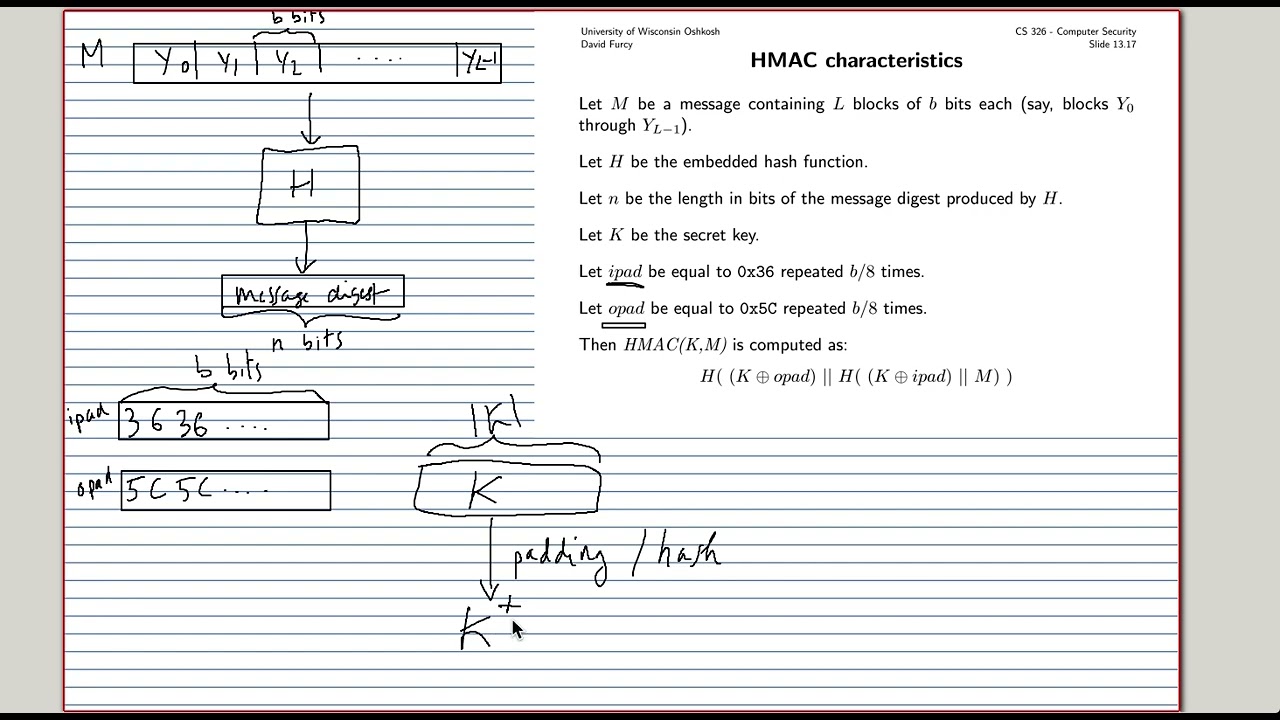 University of Wisconsin Oshkosh
David Furcy
CS 326 - Computer Security
Slide 13.17
HMAC characteristics
Let M be a message containing L blocks of b bits each (say, blocks Y₀
through Y_{L−1}).
Let H be the embedded hash function.
Let n be the length in bits of the message digest produced by H.
Let K be the secret key.
Let ipad be equal to 0x36 repeated b/8 times.
Let opad be equal to 0x5C repeated b/8 times.
Then HMAC(K,M) is computed as:
H( (K ⊕ opad) || H( (K ⊕ ipad) || M) )
b bits
M Y₀ Y₁ Y₂ .... Y_{L-1}
H
message digest
n bits
b bits
ipad 36 36 ....
opad 5C 5C ....
|K|
K
padding / hash
K⁺